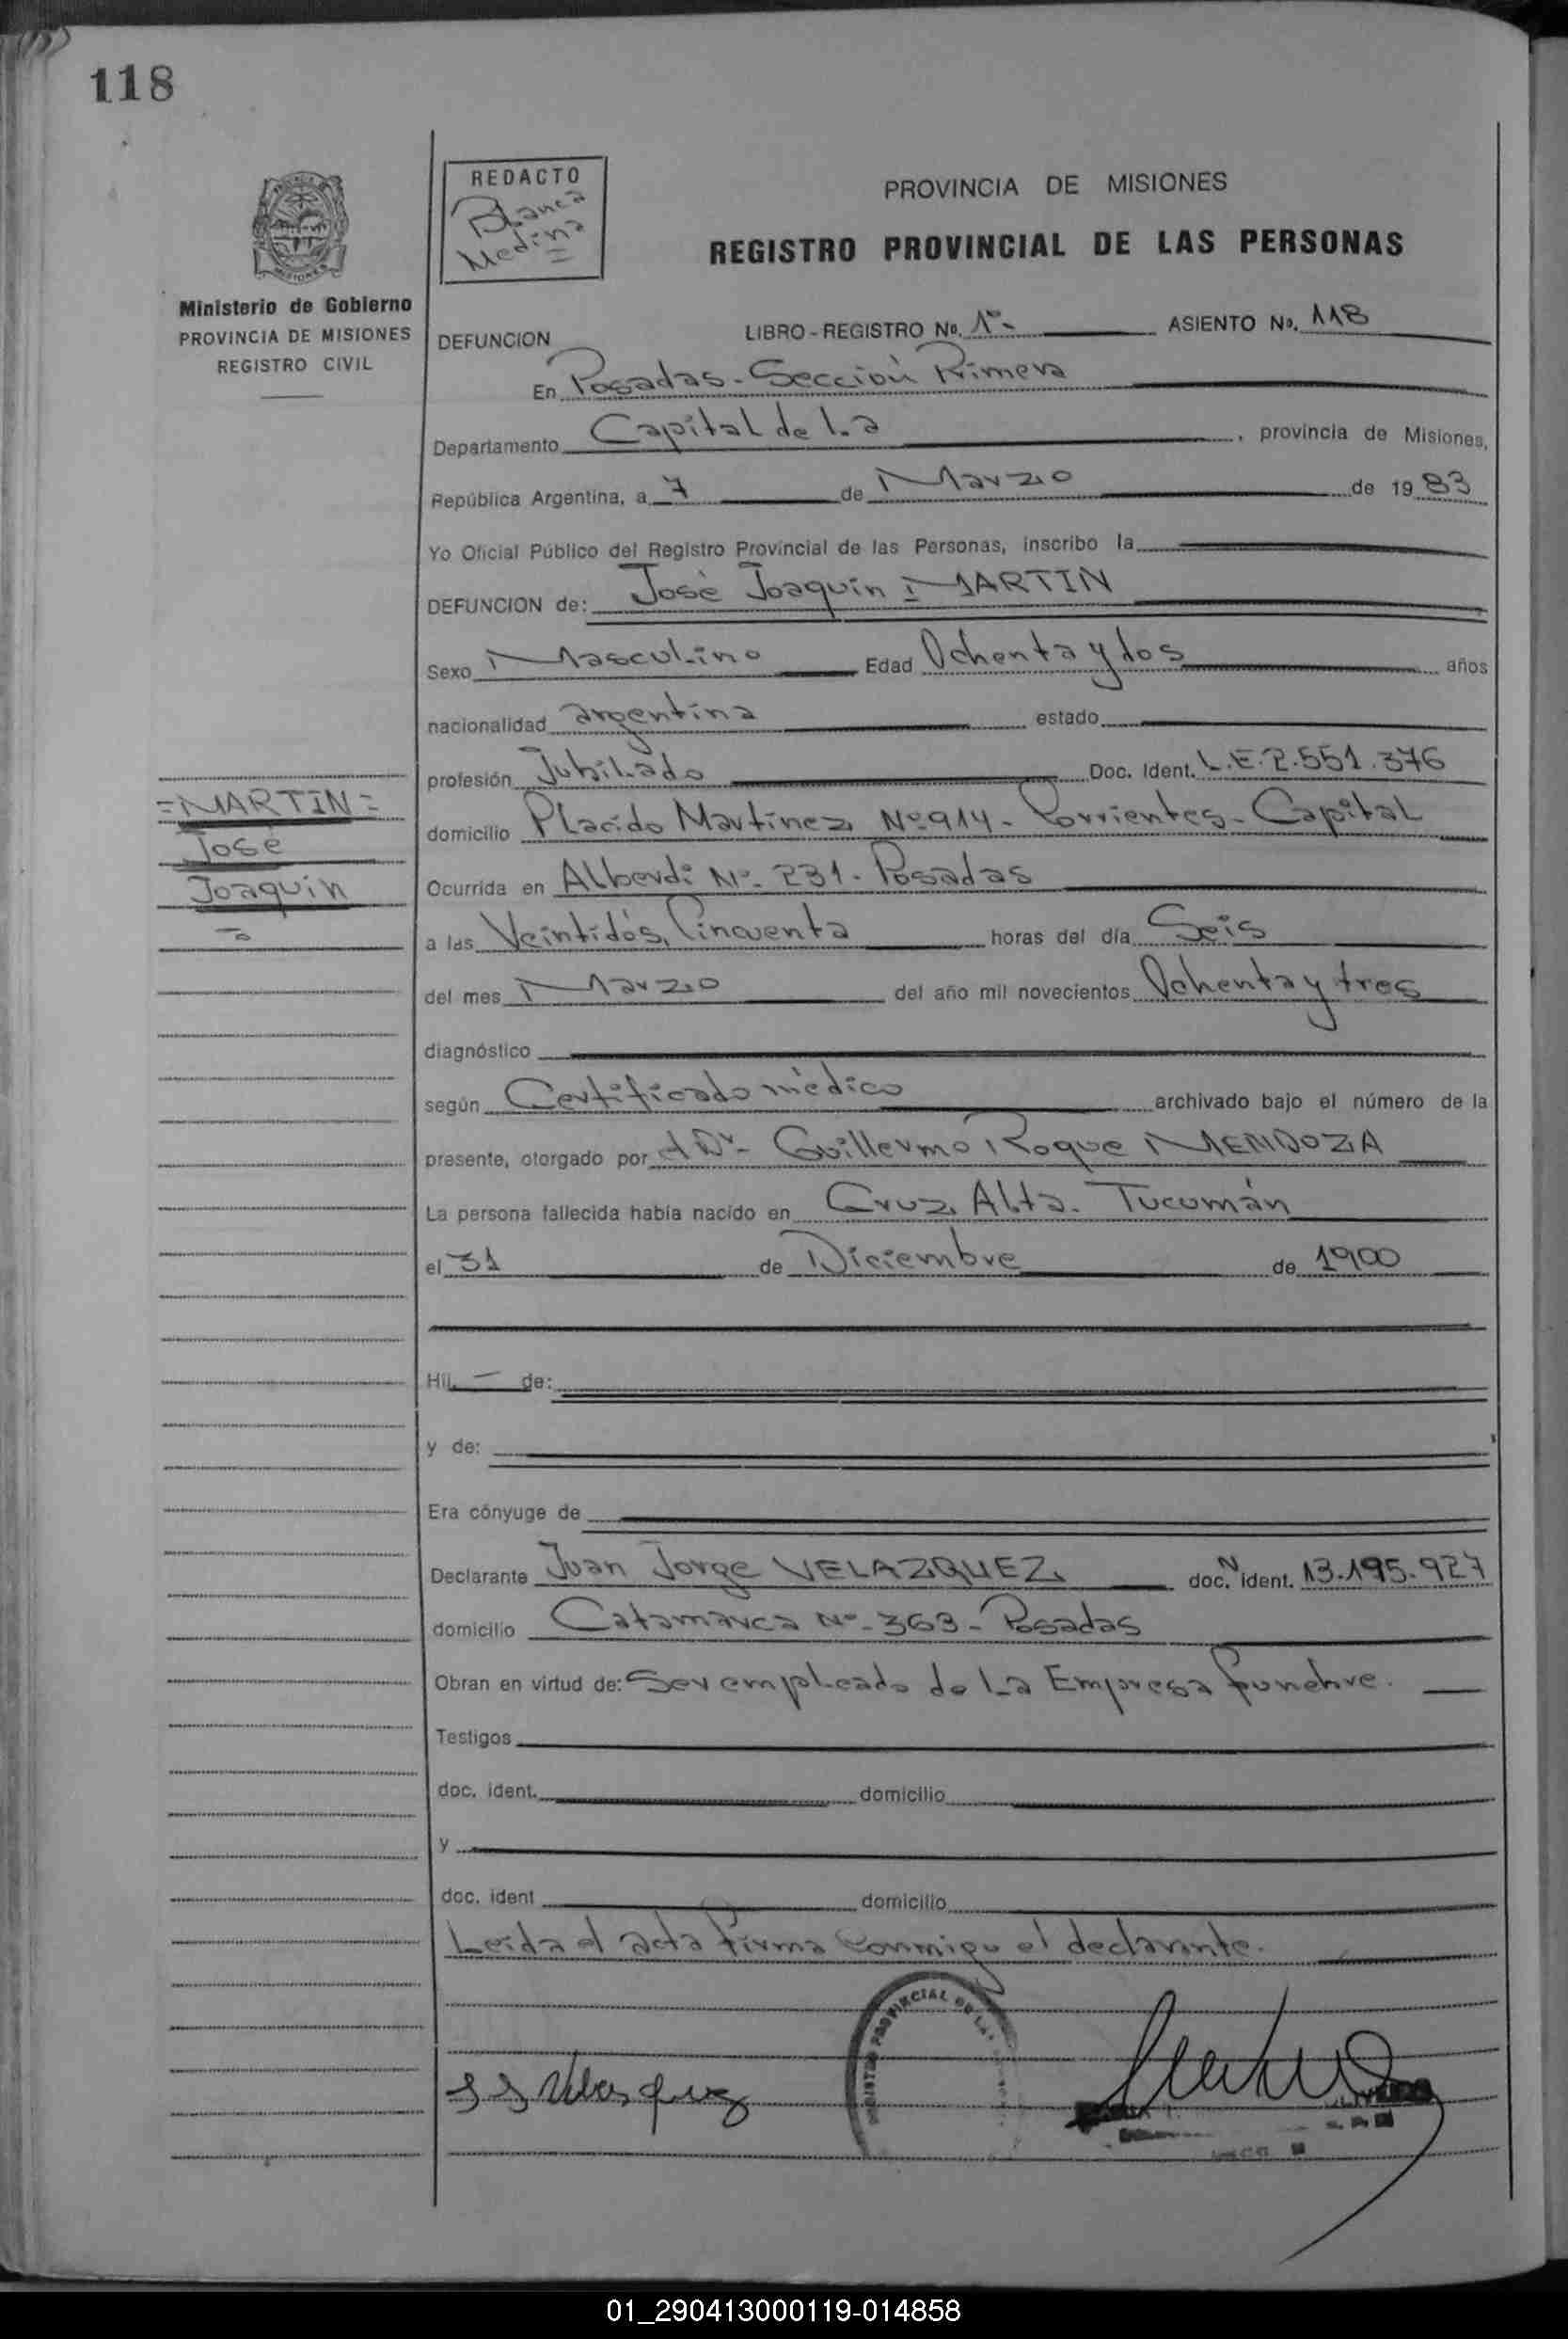 118
REDACTO
Blanca
Medina
PROVINCIA DE MISIONES
REGISTRO PROVINCIAL DE LAS PERSONAS
Ministerio de Gobierno
PROVINCIA DE MISIONES
REGISTRO CIVIL
DEFUNCION LIBRO-REGISTRO No. 1º- ASIENTO No. 118
En Posadas-Sección Primera
Departamento Capital de la, provincia de Misiones,
República Argentina, a 7 de Marzo de 1983
Yo Oficial Público del Registro Provincial de las Personas, inscribo la
DEFUNCION de: José Joaquín MARTIN
Sexo Masculino Edad Ochenta y dos años
nacionalidad argentina estado
profesión Jubilado Doc. Ident. L.E.2.551.376
domicilio Placido Martínez Nº914- Corrientes-Capital
Ocurrida en Alberdi Nº- 231-Posadas
a las Veintidós, Cincuenta horas del día Seis
del mes Marzo del año mil novecientos Ochenta y tres
diagnóstico
según Certificado médico archivado bajo el número de la
presente, otorgado por el Dr- Guillermo Roque MENDOZA
La persona fallecida había nacido en Cruz Alta-Tucumán
el 31 de Diciembre de 1900
=MARTIN=
José
Joaquín
Hij de:
y de:
Era cónyuge de
Declarante Juan Jorge VELAZQUEZ doc. N ident. 13.195.927
domicilio Catamarca Nº-363-Posadas
Obran en virtud de: Ser empleado de la Empresa fúnebre.
Testigos
doc. ident. domicilio
y
doc. ident domicilio
Leída el acta firma conmigo el declarante.
REGISTRO PROVINCIAL DE LAS
J J Velasquez
01_290413000119-014858